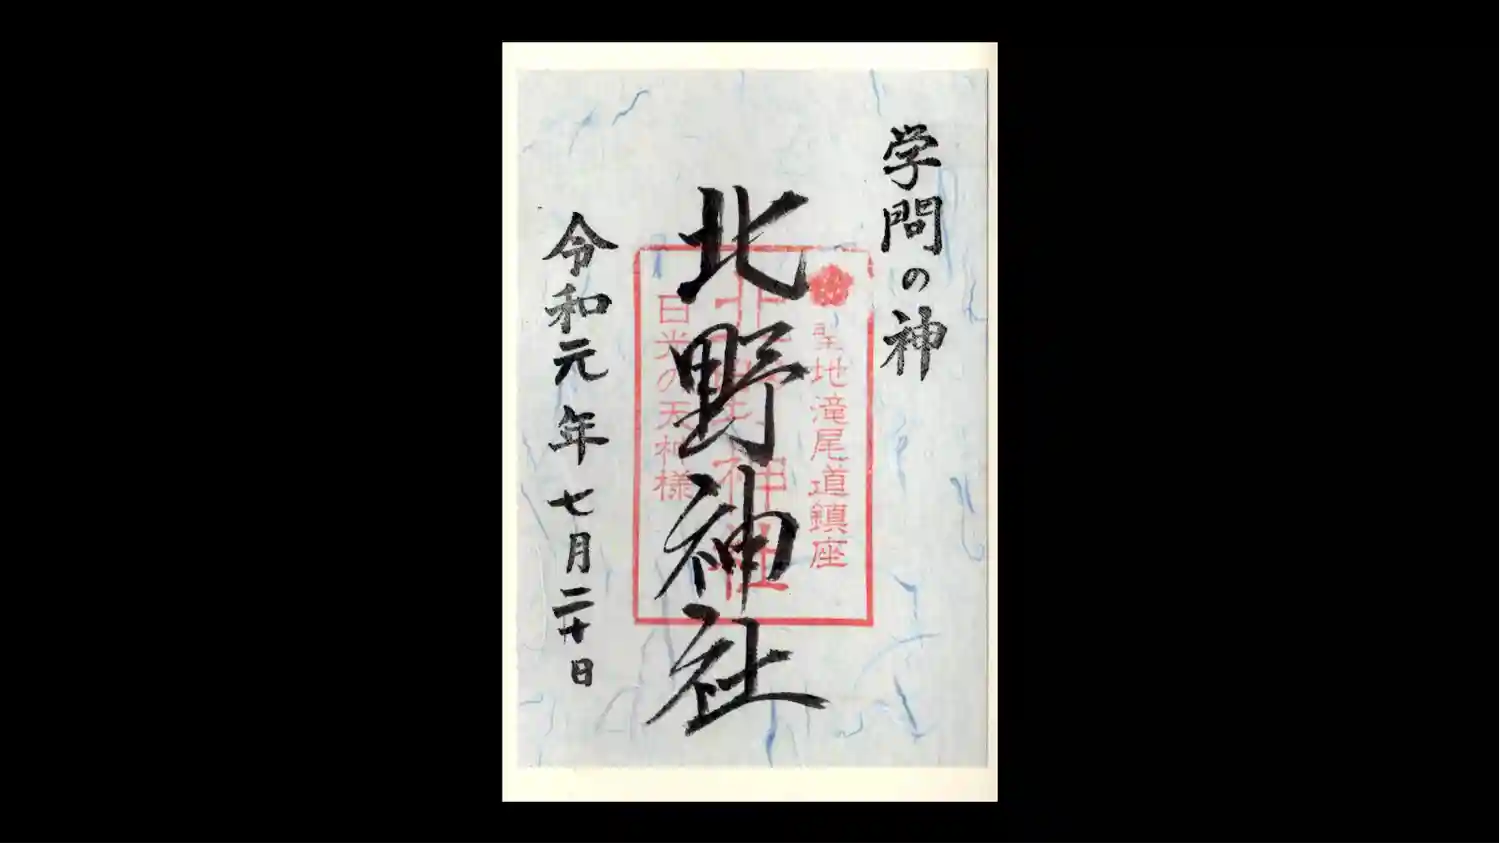 学問の神
北野神社
令和元年七月二十日
聖地滝尾道鎮座
北野神社
日光の天神様